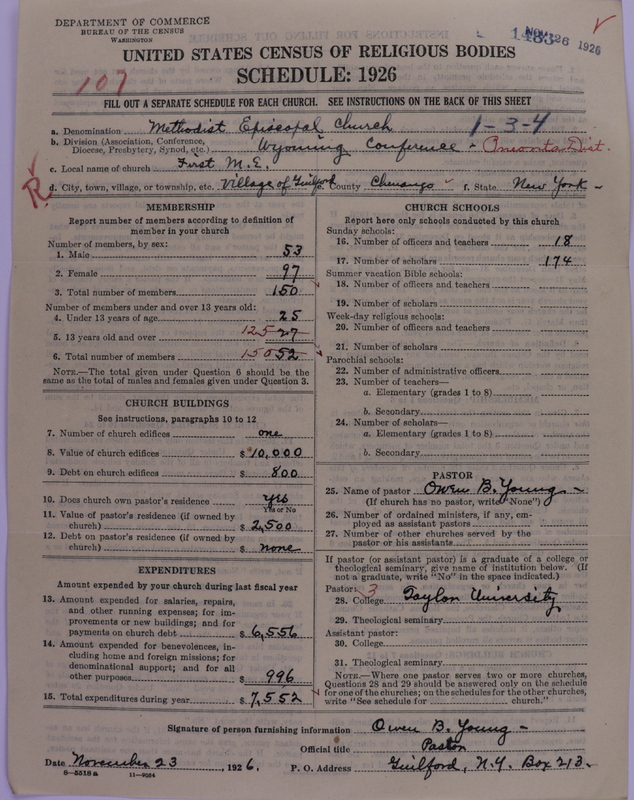 DEPARTMENT OF COMMERCE
BUREAU OF THE CENSUS
WASHINGTON
1926
UNITED STATES CENSUS OF RELIGIOUS BODIES
SCHEDULE: 1926
107
FILL OUT A SEPARATE SCHEDULE FOR EACH CHURCH. SEE INSTRUCTIONS ON THE BACK OF THIS SHEET
a. Denomination Methodist Episcopal Church 1-3-4
b. Division (Association, Conference, Diocese, Presbytery, Synod, etc.) Wyoming Conference - Oneonta Dist.
c. Local name of church First M.E.
R
d. City, town, village, or township, etc. Village of Guilford e. County Chenango - f. State New York -
MEMBERSHIP
Report number of members according to definition of member in your church
Number of members, by sex:
1. Male 53
2. Female 97
3. Total number of members 150
Number of members under and over 13 years old:
4. Under 13 years of age 25
5. 13 years old and over 125 27
6. Total number of members 150 52
NOTE.—The total given under Question 6 should be the same as the total of males and females given under Question 3.
CHURCH BUILDINGS
See instructions, paragraphs 10 to 12
7. Number of church edifices one
8. Value of church edifices $10,000
9. Debt on church edifices $ 800
10. Does church own pastor's residence Yes
Yes or No
11. Value of pastor's residence (if owned by church) $2,500
12. Debt on pastor's residence (if owned by church) $ none
EXPENDITURES
Amount expended by your church during last fiscal year
13. Amount expended for salaries, repairs, and other running expenses; for improvements or new buildings; and for payments on church debt $6,556
14. Amount expended for benevolences, including home and foreign missions; for denominational support; and for all other purposes $ 996
15. Total expenditures during year $7,552
CHURCH SCHOOLS
Report here only schools conducted by this church
Sunday schools:
16. Number of officers and teachers 18
17. Number of scholars 174
Summer vacation Bible schools:
18. Number of officers and teachers
19. Number of scholars
Week-day religious schools:
20. Number of officers and teachers
21. Number of scholars
Parochial schools:
22. Number of administrative officers
23. Number of teachers—
a. Elementary (grades 1 to 8)
b. Secondary
24. Number of scholars—
a. Elementary (grades 1 to 8)
b. Secondary
PASTOR
25. Name of pastor Owen B. Young -
(If church has no pastor, write "None")
26. Number of ordained ministers, if any, employed as assistant pastors
27. Number of other churches served by the pastor or his assistants
If pastor (or assistant pastor) is a graduate of a college or theological seminary, give name of institution below. (If not a graduate, write "No" in the space indicated.)
Pastor: 3
28. College Taylor University
29. Theological seminary
Assistant pastor:
30. College
31. Theological seminary
NOTE.—Where one pastor serves two or more churches, Questions 28 and 29 should be answered only on the schedule for one of the churches; on the schedules for the other churches, write "See schedule for church."
Signature of person furnishing information Owen B. Young -
Official title Pastor
Date November 23, 1926. P. O. Address Guilford, N.Y. Box 213.
8—5518a 11—9054